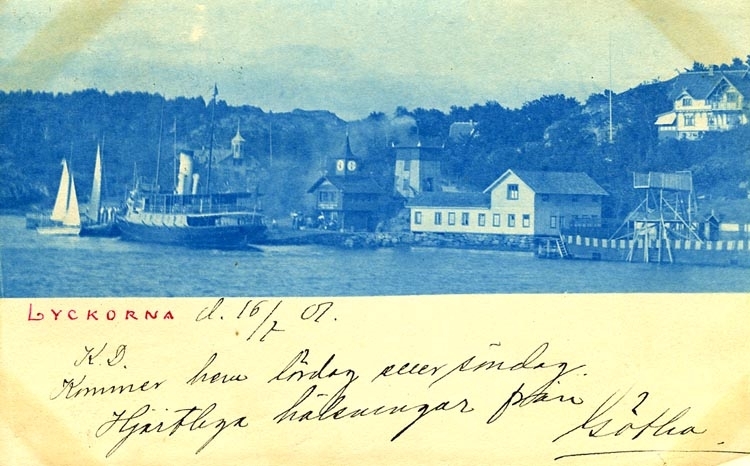 LYCKORNA d. 16/7 01.
K.D.
Kommer hem lördag eller söndag.
Hjärtliga hälsningar från
Götha